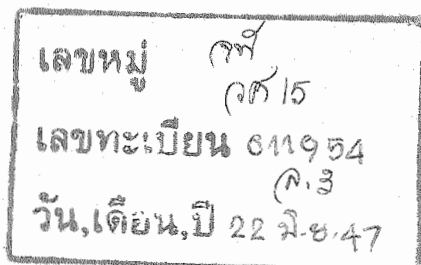 เลขหมู่ วพ
วศ 15
เลขทะเบียน 611954
ล.3
วัน,เดือน,ปี 22 มิ.ย.47